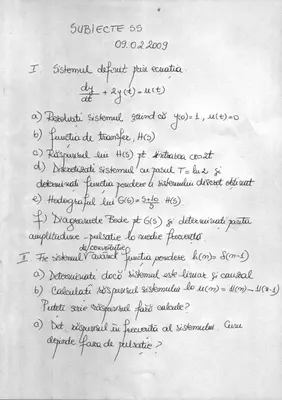 SUBIECTE SS
09.02.2009
I Sistemul definit prin ecuatia
dy/dt + 2y(t) = u(t)
a) Rezolvati sistemul stiind că y(0)=1, u(t)=0
b) functia de transfer, H(s)
c) Răspunsul lui H(s) pt intrarea cos2t
d) Discretizati sistemul cu pasul T=ln2 și
determinati functia pondere a sistemului discret obtinut
e) Hodograful lui G(s)= H(s).
f) Diagramele Bode pt G(s) și determinati panta
amplitudine - pulsatie la medie frecventă
de convolutie
II Fie sistemul având functia pondere h(n)= δ(n-1)
a) Determinati dacă sistemul este liniar și cauzal
b) Calculati răspunsul sistemului la u(n)= 1(n)-1(n-1)
Puteti scrie răspunsul fără calcule?
c) Det. răspunsul în frecventă al sistemului. Cum
depinde faza de pulsatie?